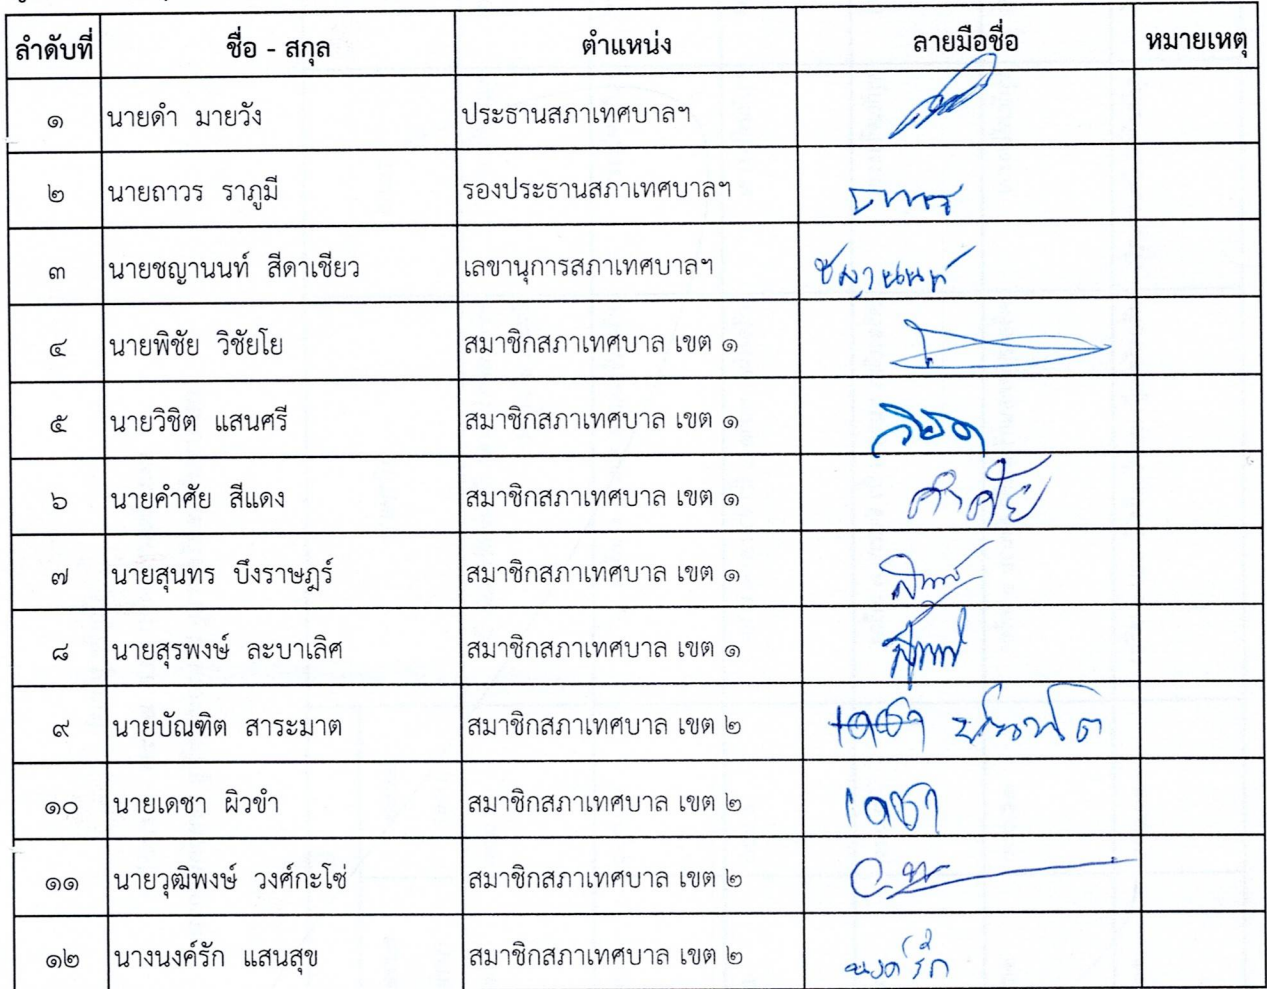 ลำดับที่ ชื่อ - สกุล ตำแหน่ง ลายมือชื่อ หมายเหตุ
๑ นายดำ มายวัง ประธานสภาเทศบาลฯ
๒ นายถาวร ราภูมี รองประธานสภาเทศบาลฯ ถาวร
๓ นายชญานนท์ สีดาเชียว เลขานุการสภาเทศบาลฯ ชญานนท์
๔ นายพิชัย วิชัยโย สมาชิกสภาเทศบาล เขต ๑
๕ นายวิชิต แสนศรี สมาชิกสภาเทศบาล เขต ๑ วิชิต
๖ นายคำศัย สีแดง สมาชิกสภาเทศบาล เขต ๑ คำศัย
๗ นายสุนทร บึงราษฎร์ สมาชิกสภาเทศบาล เขต ๑
๘ นายสุรพงษ์ ละบาเลิศ สมาชิกสภาเทศบาล เขต ๑
๙ นายบัณฑิต สาระมาต สมาชิกสภาเทศบาล เขต ๒ เดชา บัณฑิต
๑๐ นายเดชา ผิวขำ สมาชิกสภาเทศบาล เขต ๒ เดชา
๑๑ นายวุฒิพงษ์ วงศ์กะโซ่ สมาชิกสภาเทศบาล เขต ๒
๑๒ นางนงค์รัก แสนสุข สมาชิกสภาเทศบาล เขต ๒ นงค์รัก